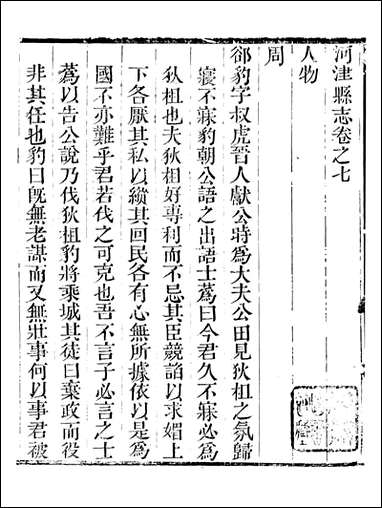 河津縣志卷之七
人物
周
郤豹字叔虎晉人獻公時爲大夫公田見狄柤之氛歸
寢不寐豹朝公語之出語士蔿曰今君久不寐必爲
狄柤也夫狄柤好專利而不忌其臣競諂以求媚上
下各厭其私以縱其回民各有心無所據依以是爲
國不亦難乎君若伐之可克也吾不言子必言之士
蔿以告公說乃伐狄柤豹將乘城其徒曰棄政而役
非其任也豹曰旣無老謀而又無壯事何以事君被